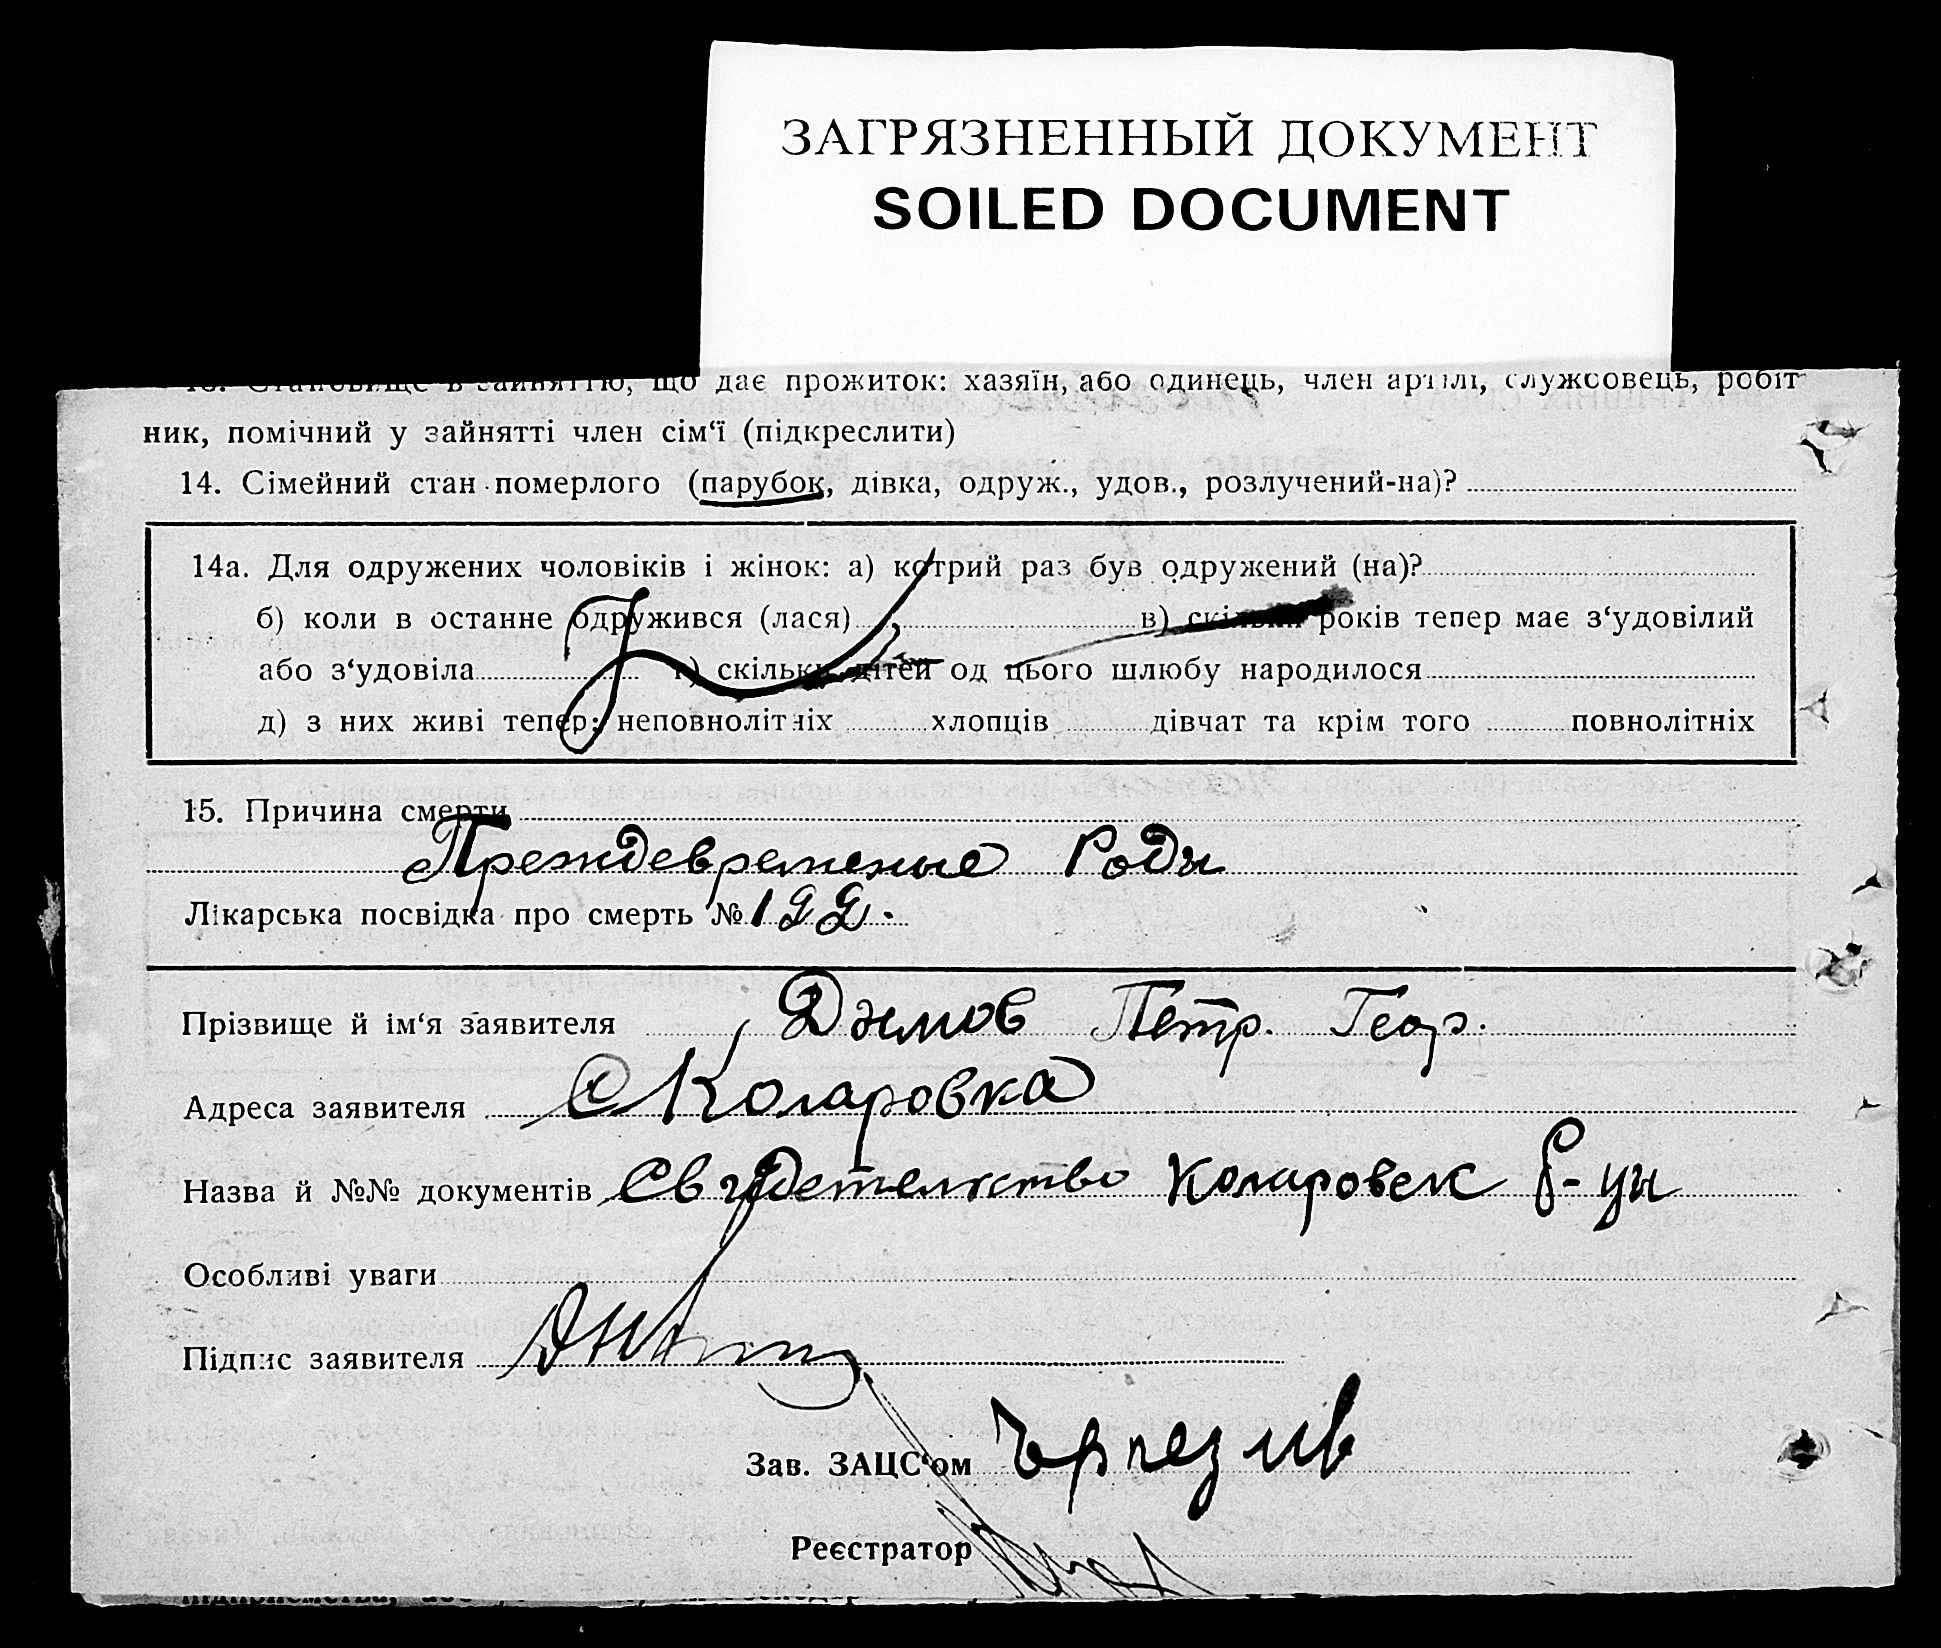 ЗАГРЯЗНЕННЫЙ ДОКУМЕНТ
SOILED DOCUMENT
13. Становище в зайняттю, що дає прожиток: хазяїн, або одинець, член артілі, служсовець, робіт-
ник, помічний у зайнятті член сім‘ї (підкреслити)
14. Сімейний стан померлого (парубок, дівка, одруж., удов., розлучений-на)?
14а. Для одружених чоловіків і жінок: а) котрий раз був одружений (на)?
б) коли в останне одружився (лася) в) скільки років тепер має з‘удовілий
або з‘удовіла г) скільки дітей од цього шлюбу народилося
д) з них живі тепер: неповнолітніх хлопців дівчат та крім того повнолітніх
15. Причина смерти
Преждевременые Роды
Лікарська посвідка про смерть № 122.
Прізвище й ім‘я заявителя Димов Петр. Геор.
Адреса заявителя с Коларовка
Назва й №№ документів Свидетельство Коларовск б-цы
Особливі уваги
Підпис заявителя
Зав. ЗАЦС‘ом
Реєстратор